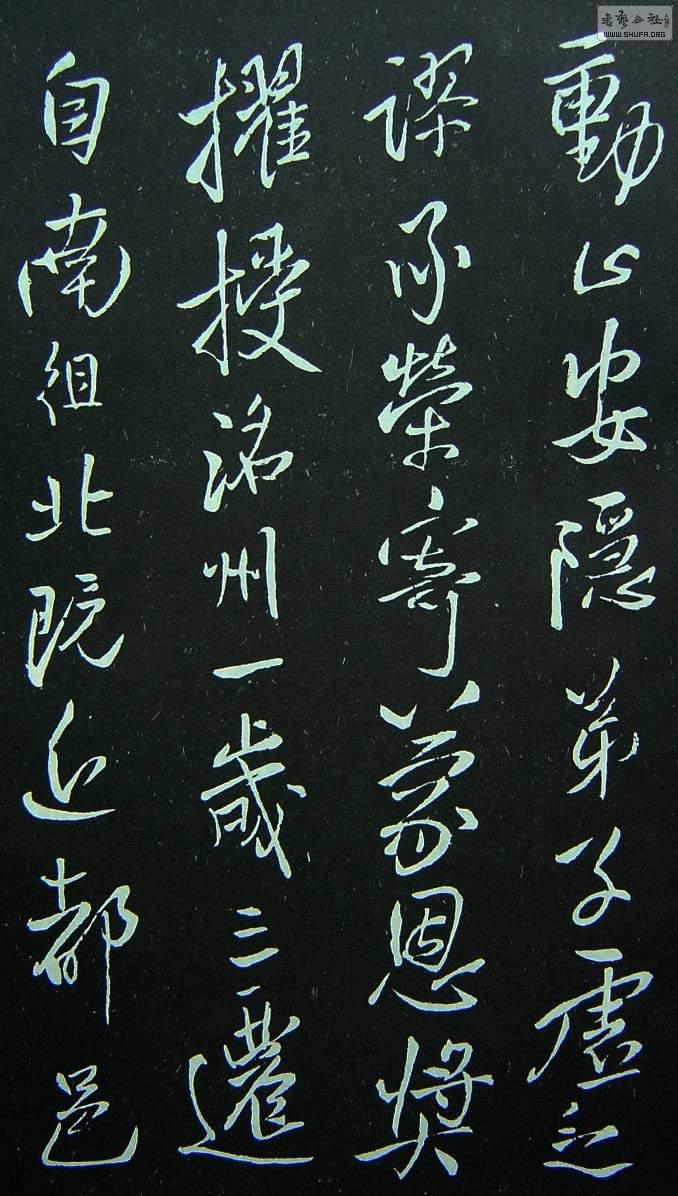 動止安隱弟子虛乏
謬承榮寄蒙恩獎
擢授洺州一歲三遷
自南徂北既近都邑
書藝公社
WWW.SHUFA.ORG